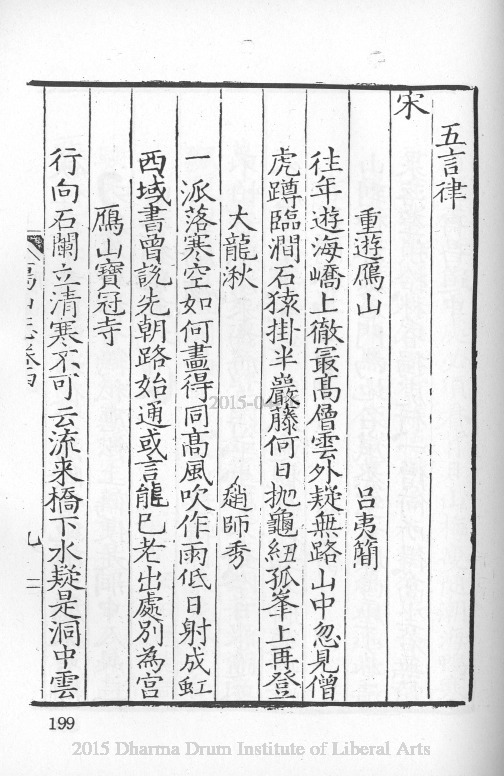 五言律
宋
重遊鴈山 呂夷簡
往年遊海嶠上徹最髙僧雲外疑無路山中忽見僧
虎蹲臨澗石猿掛半巖藤何日抛龜紐孤峯上再登
大龍秋 趙師秀
一派落寒空如何盡得同髙風吹作雨低日射成虹
西域書曾說先朝路始通或言龍已老出處別為宮
鴈山寶冠寺
行向石闌立清寒不可云流来橋下水疑是洞中雲
山志卷四 九
199
2015 Dharma Drum Institute of Liberal Arts